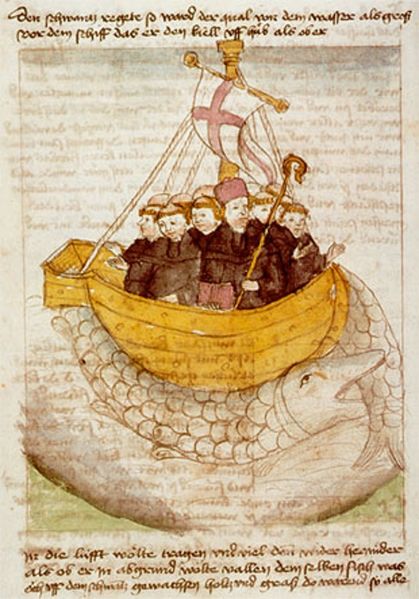 Den schwantz regete so ward der qual von dem wasser als groß
vor dem schiff das er den kiell vff hůb als ob er
in die lufft wölte tragen vnd viel den wider hernider
als ob er in abgrund wölte vallen dem selben fisch was
och vff dem schwantz gewachsen holtz vnd graß do warend so alle